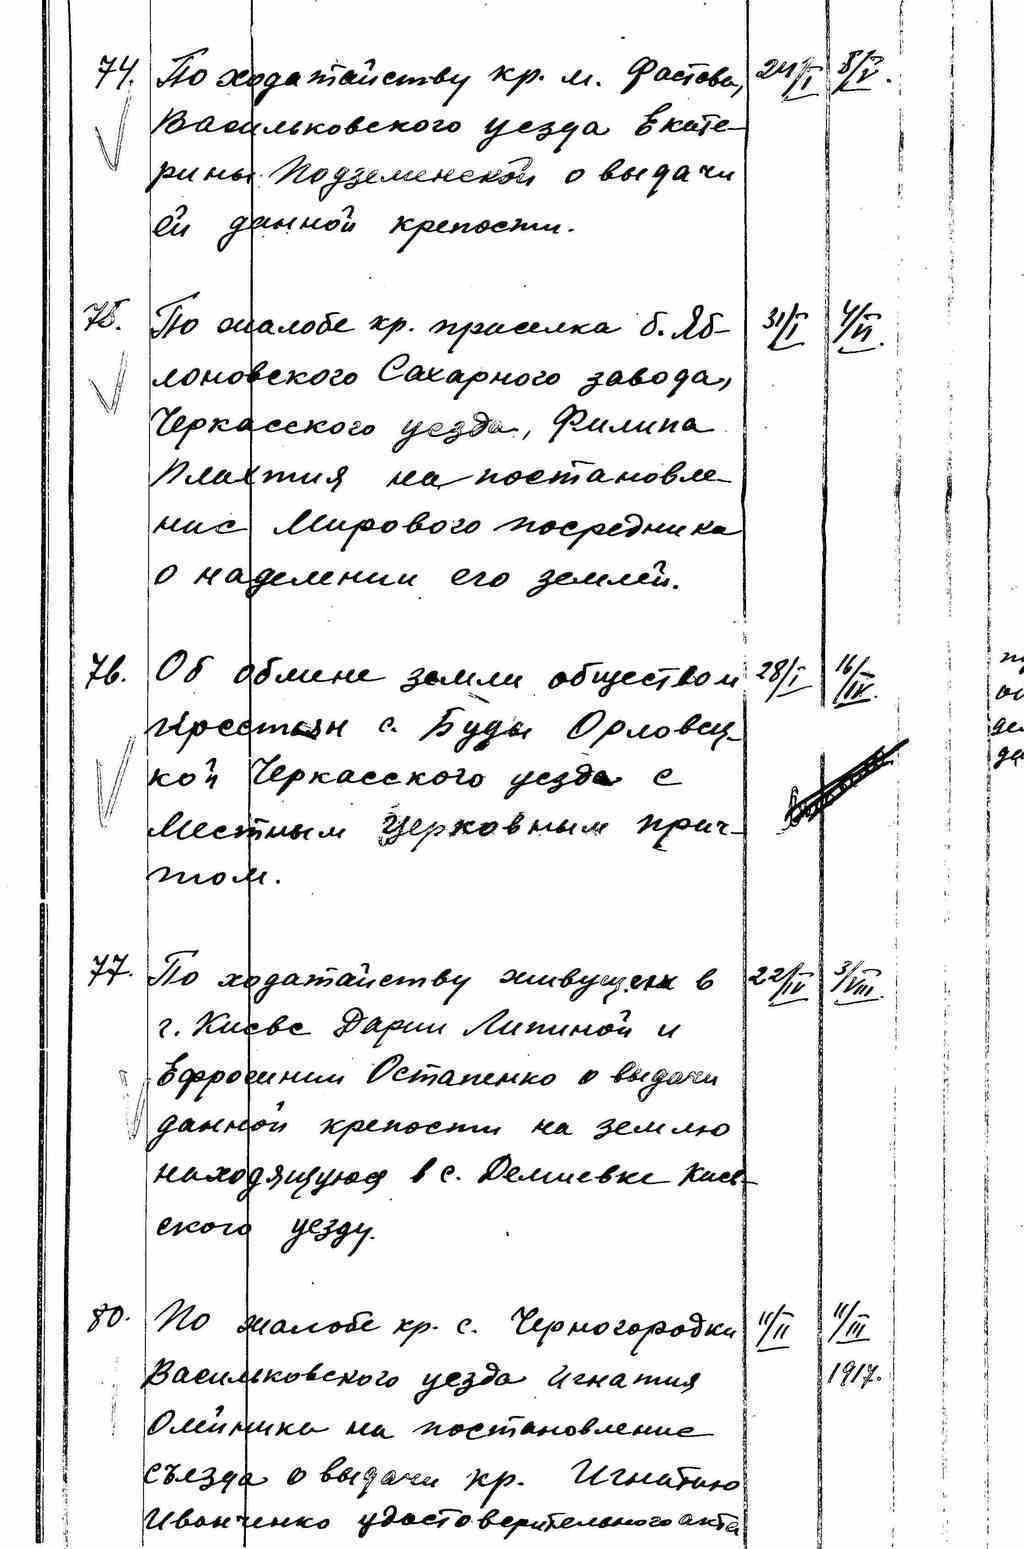 74. По ходатайству кр. м. Фастова, 24/I 8/V.
Васильковского уезда Екате-
рины Подземенской о выдачи
ей данной крепости.
75. По жалобе кр. приселка б. Яб- 31/I 4/VI.
лоновского Сахарного завода,
Черкасского уезда, Филипа
Плахтия на постановле-
ние Мирового посредника
о наделении его землей.
76. Об обмене земли обществом 28/I 16/IX.
крестьян с. Буды Орловец-
кой Черкасского уезда с
местным церковным прич-
том.
77. По ходатайству живущей в 22/IV 3/VIII.
г. Киеве Дарии Липиной и
Ефросинии Остапенко о выдачи
данной крепости на землю
находящуюся в с. Демиевке Киев-
ского уезду.
80. По жалобе кр. с. Черногородки 11/II 11/III
Васильковского уезда Игнатия 1917.
Олейника на постановление
съезда о выдачи кр. Игнатию
Иванченко удостоверительного акта